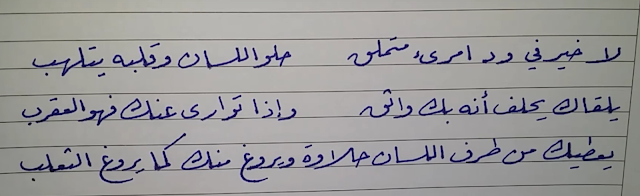 لا خير في ود امرىء متملق حلو اللسان وقلبه يتلهب
يلقاك يحلف أنه بك واثق وإذا توارى عنك فهو العقرب
يعطيك من طرف اللسان حلاوة ويروغ منك كما يروغ الثعلب